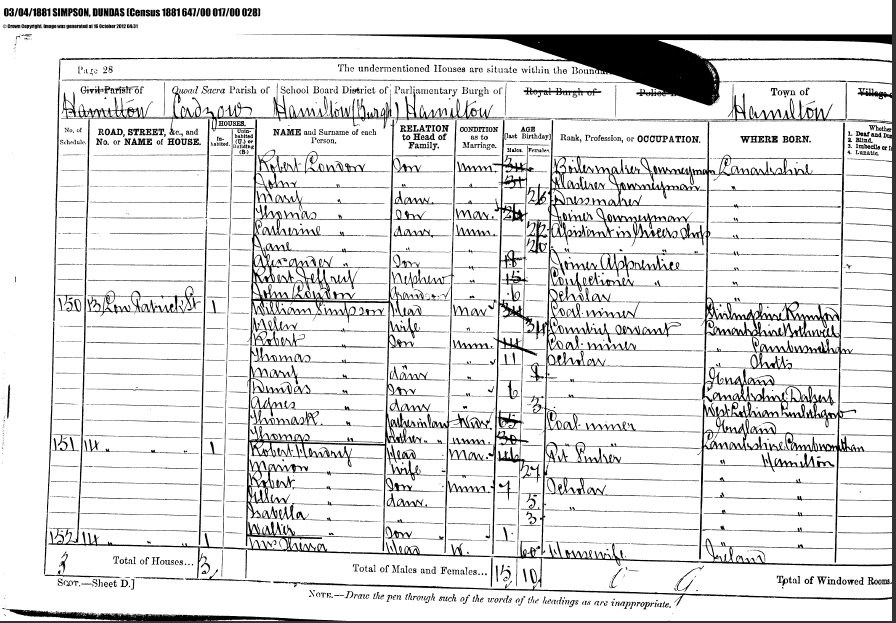 03/04/1881 SIMPSON, DUNDAS (Census 1881 647/00 017/00 028)
© Crown Copyright. Image was generated at 16 October 2012 04:31
Page 28
The undermentioned Houses are situate within the Bounda
Civil Parish of Quoad Sacra Parish of School Board District of Parliamentary Burgh of Royal Burgh of Police Town of Village
Hamilton Cadzow Hamilton (Burgh) Hamilton Hamilton
No. of Schedule. ROAD, STREET, &c., and No. or NAME of HOUSE. HOUSES. Inhabited. Uninhabited (U.) or Building (B.) NAME and Surname of each Person. RELATION to Head of Family. CONDITION as to Marriage. AGE [last Birthday]. Males. Females. Rank, Profession, or OCCUPATION. WHERE BORN. Whethe 1. Deaf and Du 2. Blind. 3. Imbecile or I 4. Lunatic.
Robert London Son unm. Boilermaker Journeyman Lanarkshire
John " " " Plasterer Journeyman "
Mary " daur. 26 Dressmaker "
Thomas " Son Mar. Joiner Journeyman "
Catherine " daur. unm. 22 Assistant in Grocers Shop "
Jane " " 20 " " "
Alexander " Son 18 Joiner Apprentice "
Robert Jeffrey Nephew 15 Confectioner " "
John London Grandson 6 Scholar "
150 13 Low Patrick St 1 William Simpson Head Mar. 34 Coal miner Stirlingshire
Helen " Wife 34 servant Lanarkshire Bothwell
Robert " Son unm. 14 Coal miner " Cambusnethan
Thomas " 11 Scholar " Shotts
Mary " daur " England
Dundas " Son 6 " Lanarkshire Dalserf
Agnes " daur 3 West Lothian Linlithgow
Thomas R. " father in law 65 Coal miner England
Thomas " " unm. 30 " " Lanarkshire Cambusnethan
151 14 " " " 1 Robert Hendry Head Mar. 46 Pit Sinker " Hamilton
Marion " Wife 27 " "
Robert " Son unm. 7 Scholar " "
" daur. 5 " " "
Isabella " " 3 " "
Walter " Son 1 " "
152 14 " " 1 Mrs Head W. 60 Housewife Ireland
3 Total of Houses... 3 Total of Males and Females... 15 10 Total of Windowed Rooms
SCOT.—Sheet D.]
NOTE.—Draw the pen through such of the words of the headings as are inappropriate.